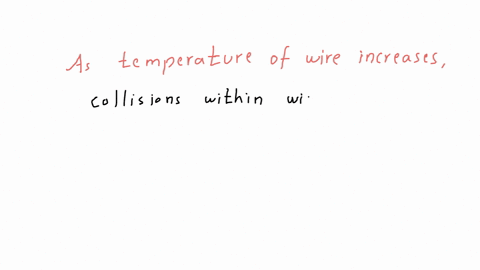 As temperature of wire increases,
collisions within wi